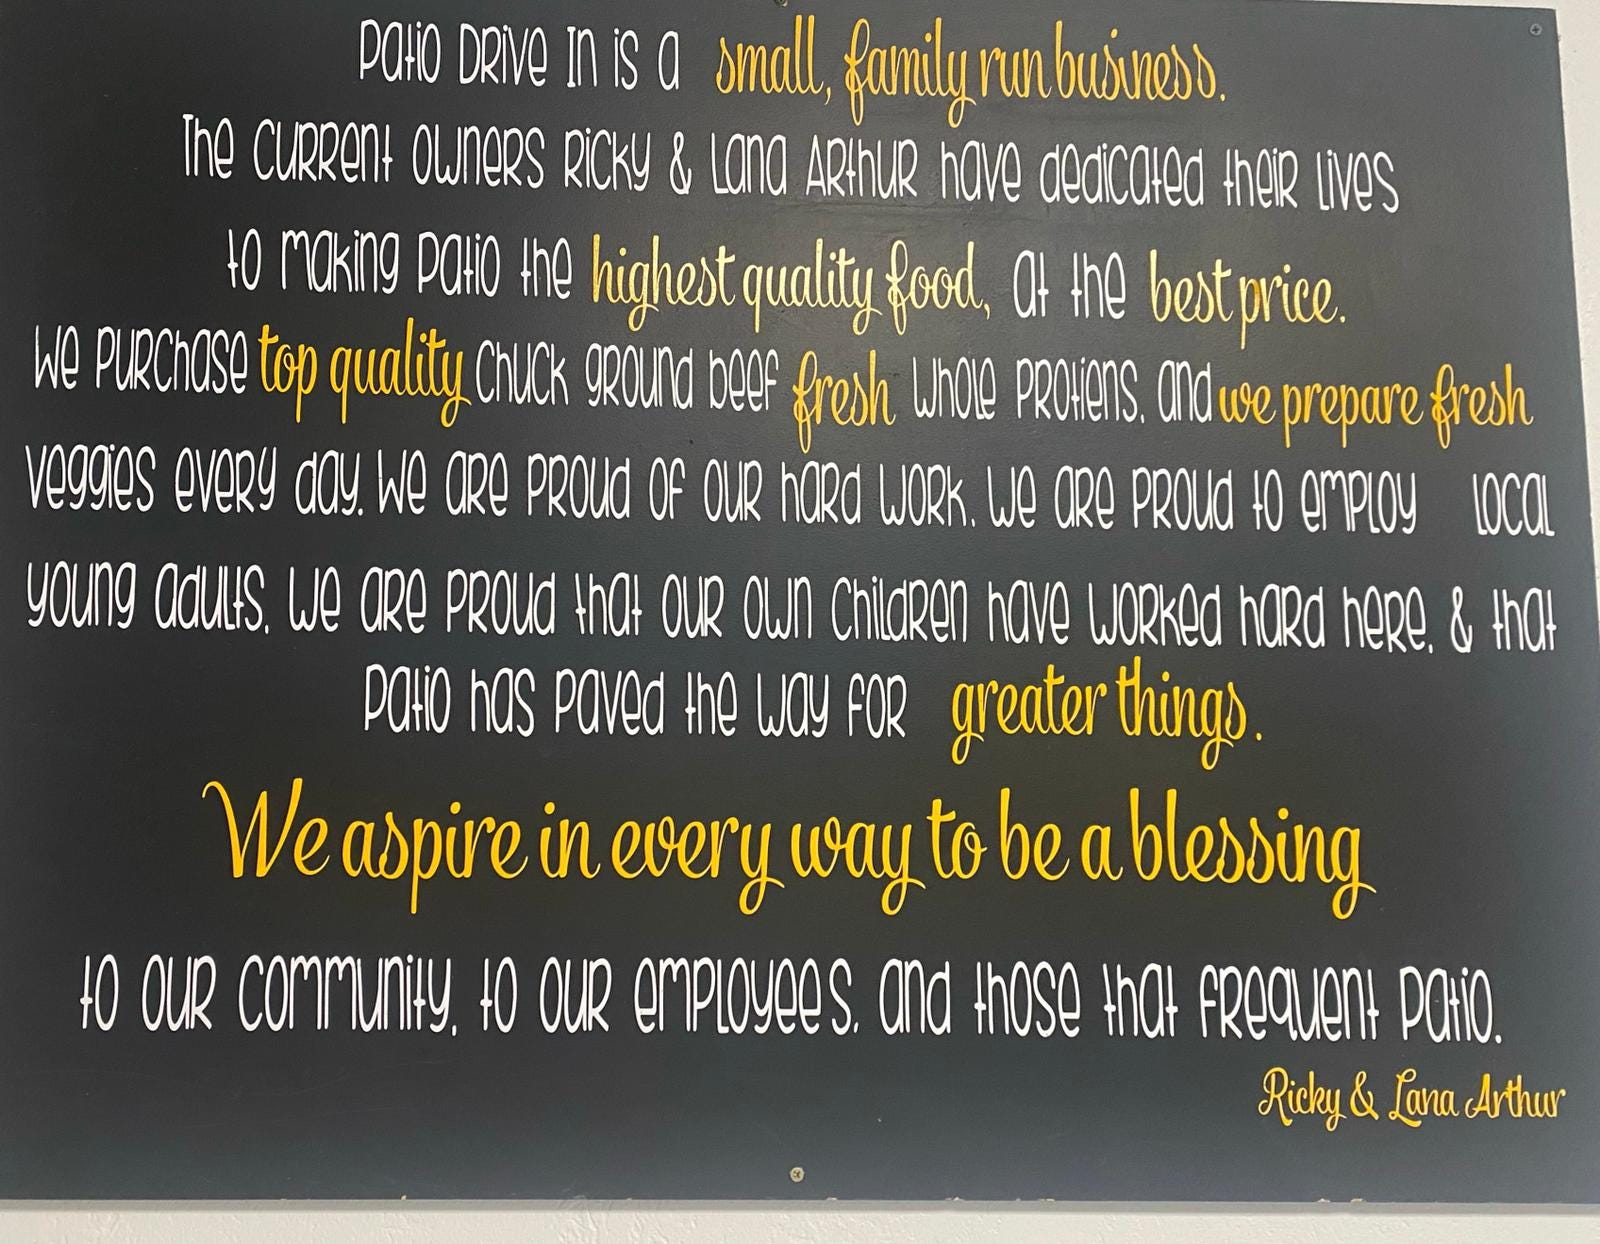 Patio Drive In is a small, family run business.
The current owners Ricky & Lana Arthur have dedicated their lives
to making Patio the highest quality food, at the best price.
We purchase top quality chuck ground beef fresh whole protiens, and we prepare fresh
veggies every day. We are proud of our hard work. We are proud to employ local
young adults. We are proud that our own children have worked hard here, & that
Patio has paved the way for greater things.
We aspire in every way to be a blessing
to our community, to our employees, and those that frequent Patio.
Ricky & Lana Arthur